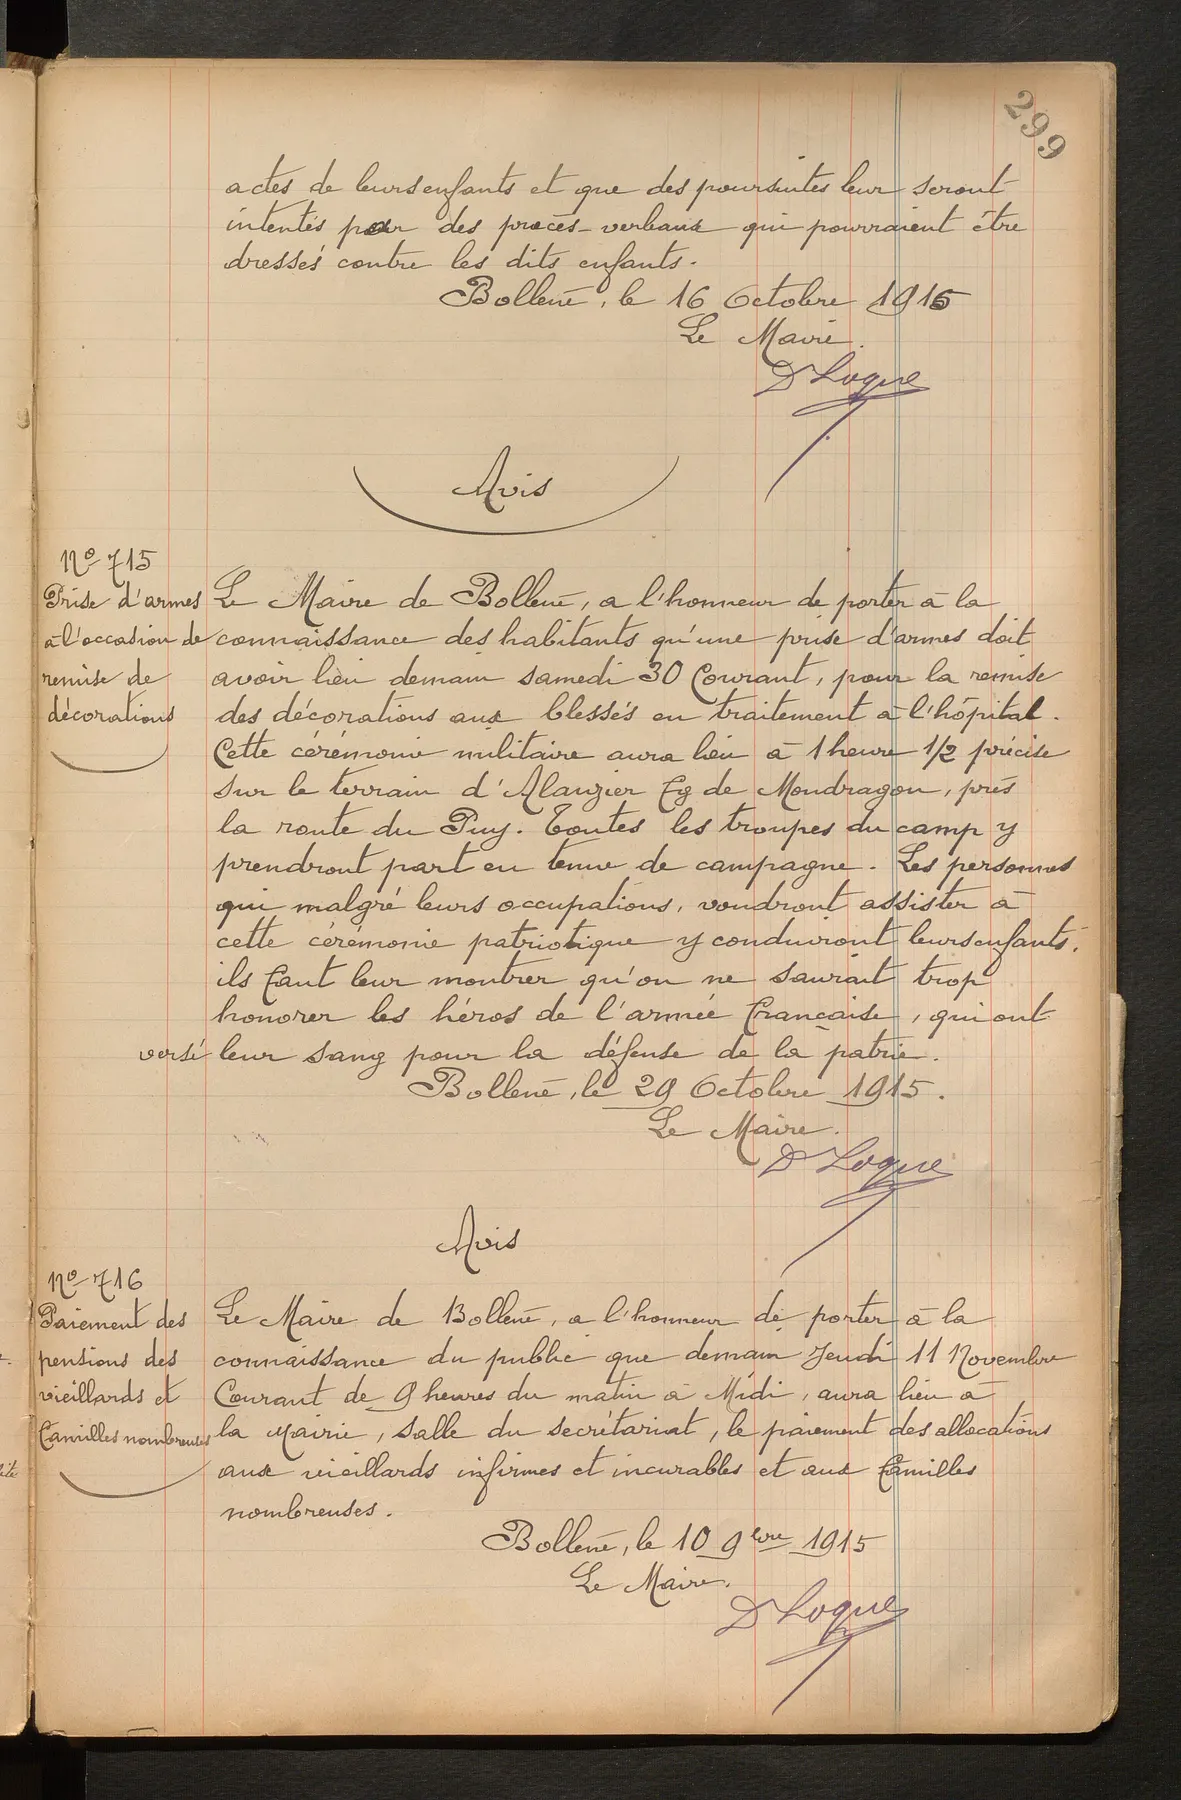 299
actes de leurs enfants et que des poursuites leur seront
intentés pour des procès-verbaux qui pourraient être
dressés contre les dits enfants.
Bollène, le 16 Octobre 1915
Le Maire.
Dr Loque
Avis
No 715
Prise d'armes
à l'occasion de
remise de
décorations
Le Maire de Bollène, a l'honneur de porter à la
connaissance des habitants qu'une prise d'armes doit
avoir lieu demain samedi 30 Courant, pour la remise
des décorations aux blessés en traitement à l'hôpital.
Cette cérémonie militaire aura lieu à 1 heure 1/2 précise
sur le terrain d'Alauzier Fg de Mondragon, près
la route du Puy. Toutes les troupes du camp y
prendront part en tenue de campagne. Les personnes
qui malgré leurs occupations, voudront assister à
cette cérémonie patriotique y conduiront leurs enfants.
ils faut leur montrer qu'on ne saurait trop
honorer les héros de l'armée française, qui ont
versé leur sang pour la défense de la patrie.
Bollène, le 29 Octobre 1915.
Le Maire.
Dr Loque
Avis
No 716
Paiement des
pensions des
vieillards et
familles nombreuses
Le Maire de Bollène, a l'honneur de porter à la
connaissance du public que demain Jeudi 11 Novembre
Courant de 9 heures du matin à Midi, aura lieu à
la Mairie, salle du secrétariat, le paiement des allocations
aux vieillards infirmes et incurables et aux familles
nombreuses.
Bollène, le 10 9bre 1915
Le Maire.
Dr Loque